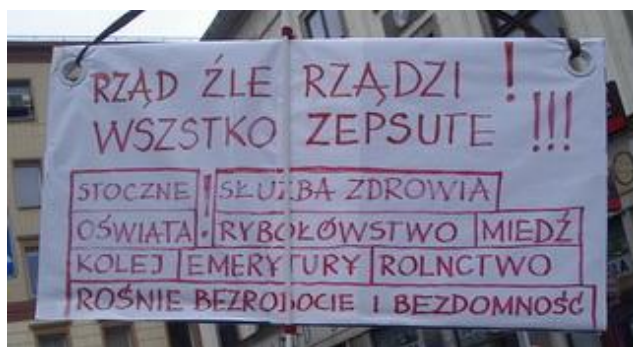 RZĄD ŹLE RZĄDZI !
WSZSTKO ZEPSUTE !!!
STOCZNE ! SŁUŻBA ZDROWIA
OŚWIATA RYBOŁÓWSTWO MIEDŹ
KOLEJ EMERYTURY ROLNCTWO
ROŚNIE BEZROBOCIE I BEZDOMNOŚĆ